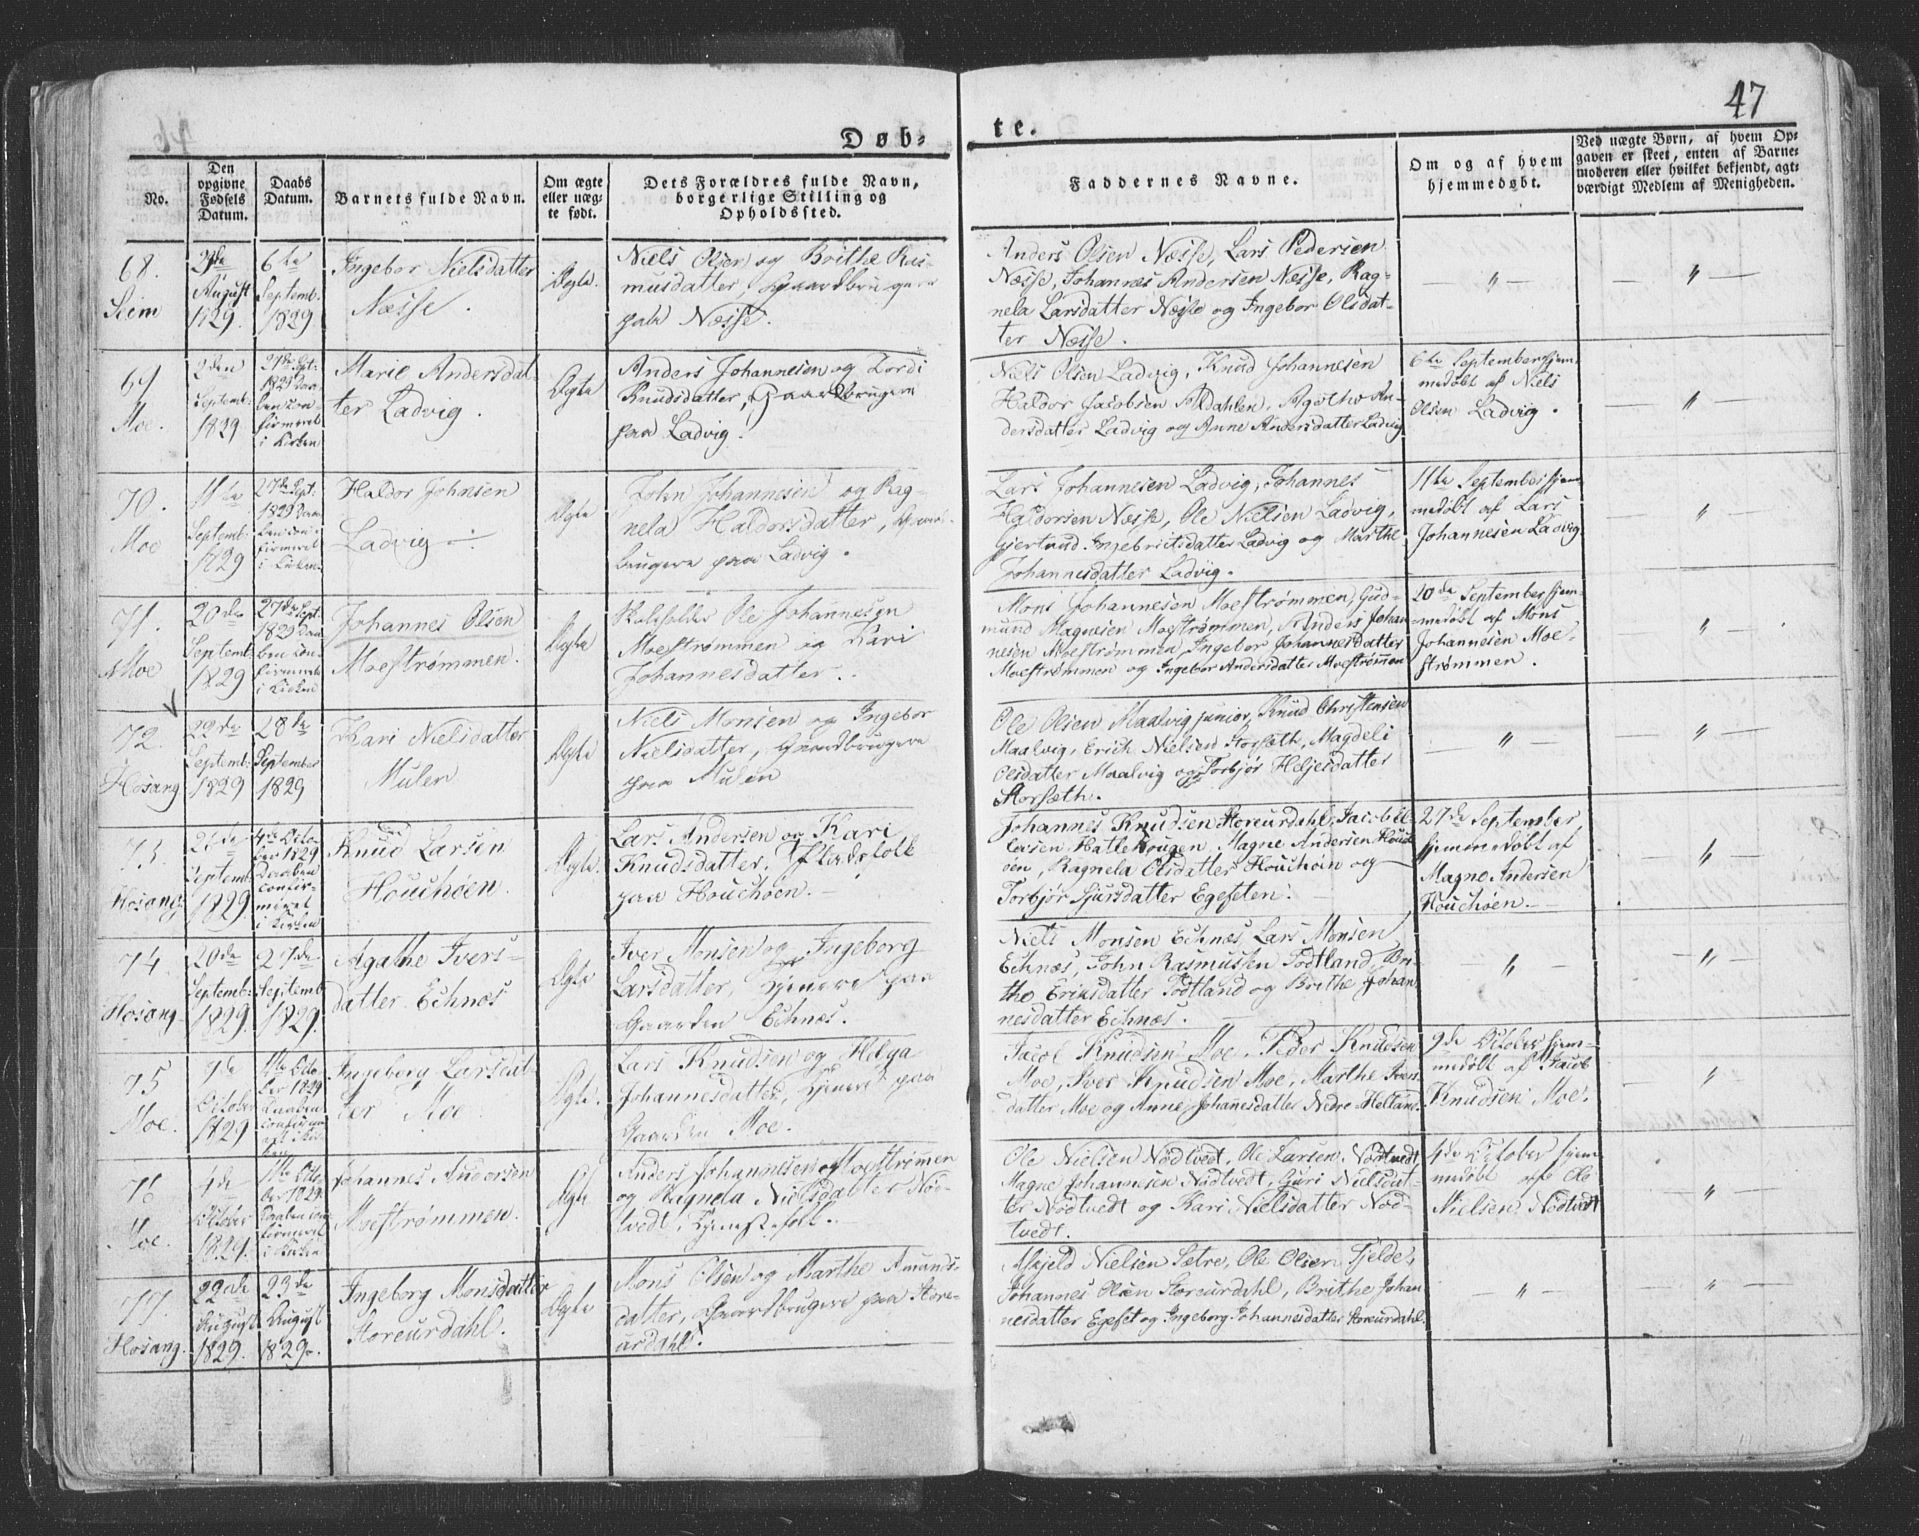 47
Døb-
te.
No.
Den opgivne Fødsels Datum.
Daabs Datum.
Barnets fulde Navn.
Om ægte eller uægte født.
Dets Forældres fulde Navn, borgerlige Stilling og Opholdssted.
Faddernes Navne.
Om og af hvem hjemmedøbt.
Ved uægte Børn, af hvem Opgaven er skeet, enten af Barnemoderen eller hvilket bekjendt, agtværdigt Medlem af Menigheden.
68.
Seim
August
1829.
6te
Septemb.
1829
Ingebor Nielsdatter
Næsse.
Ægte.
Niels Olsen og Brithe Ras-
musdatter, Gaardbrugere
paa Næsse.
Anders Olsen Næsse, Lars Pedersen
Næsse, Johannes Andersen Næsse, Rag-
nela Larsdatter Næsse og Ingebor Olsdat-
ter Næsse.
"
"
69
Moe.
2den
Septemb.
1829
27de Sept.
1829 Daa-
ben con-
firmeret
i Kirken
Marie Andersdat-
ter Ladvig.
Ægte
Anders Johannesen og Lordi
Knudsdatter, Gaardbrugere
paa Ladvig.
Niels Olsen Ladvig, Knud Johannesen
Haldor Jacobsen Aadahlen, Agethe An-
dersdatter Ladvig og Anne Andersdatter Ladvig
6te September hjem-
medøbt af Niels
Olsen Ladvig.
"
70.
Moe
11te
Septemb.
1829
27de Sept.
1829 Daa-
ben con-
firmeret
i Kirken
Haldor Johnsen
Ladvig
Ægte
John Johannesen og Rag-
nela Haldorsdatter, Gaard-
brugere paa Ladvig.
Lars Johannesen Ladvig, Johannes
Haldorsen Næsse, Ole Nielsen Ladvig,
Gjertrud Ingebrictsdatter Ladvig og Marthe
Johannesdatter Ladvig.
11te September hjem-
medøbt af Lars
Johannesen Ladvig
"
71.
Moe
20de
Septemb.
1829
27de Sept.
1829 Daa-
ben con-
firmeret
i Kirken
Johannes Olsen
Moestrømmen.
Ægte
Ole Johannesen
Moestrømmen og Kari
Johannesdatter.
Mons Johannesen Moestrømmen, Gud-
mund Magnesen Moestrømmen, Anders Johan-
nesen Moestrømmen, Ingebor Johannesdatter
Moestrømmen og Ingebor Andersdatter Moestrømmen
20de September hjem-
medøbt af Mons
Johannesen Moe-
strømmen.
"
72.
Hosang
Septemb.
1829
28de
September
1829
Kari Nielsdatter
Mulen
Ægte
Niels Monsen og Ingebor
Nielsdatter, Gaardbrugere
paa Mulen
Ole Olsen Maalvig junior, Knud Christensen
Maalvig, Erich Nielsen Storsæth, Magdeli
Olsdatter Maalvig og Torbjør Heljesdatter
Storsæth.
"
"
73.
Hosang.
Septemb.
1829
4de Octo-
ber 1829
Daaben
confir-
meret
i Kirken
Knud Larsen
Houchøen.
Ægte.
Lars Andersen og Kari
Knudsdatter, Pladsfolk
paa Houchøen.
Johannes Knudsen Storeurdahl, Jacob El-
lersen Hattekougen, Magne Andersen Houch-
øen, Ragnela Olsdatter Houchøin og
Torbjør Sjursdatter Egefeten.
27de September
hjemmedøbt af
Magne Andersen
Houchøen.
"
74.
Hosang.
20de
Septemb.
1829.
27de
Septemb.
1829.
Agathe Ivers-
datter Echnæs
Ægte
Iver Monsen og Ingeborg
Larsdatter, tjenere paa
Gaarden Echnæs.
Niels Monsen Echnæs, Lars Monsen
Echnæs, John Rasmussen Todtland, Bri-
the Eriksdatter Todtland og Brithe Johan-
nesdatter Echnæs.
"
"
75
Moe.
October
1829
11te Octo-
ber 1829
Daaben
Ingeborg Larsdat-
ter Moe
Ægte.
Lars Knudsen og Helga
Johannesdatter, tjenere paa
Gaarden Moe.
Jacob Knudsen Moe, Peder Knudsen
Moe, Iver Knudsen Moe, Marthe Ivers-
datter Moe og Anne Johannesdatter Nedre-Helland.
9de October hjem-
medøbt af Jacob
Knudsen Moe.
"
76
Moe.
4de
October
1829.
11te Octo-
ber 1829
Daaben con-
firmeret
i Kirken
Johannes Andersen
Moestrømmen.
Ægte
Anders Johannesen Moestrømmen
og Ragnela Nielsdatter Nød-
tvedt, Tjenestefolk.
Ole Nielsen Nødtvedt, Ole Larsen Nødtvedt,
Magne Johannesen Nødtvedt, Guri Nielsdat-
ter Nødtvedt og Kari Nielsdatter Nød-
tvedt.
4de October hjem-
medøbt af Ole
Nielsen Nødtvedt
"
77.
Hosang.
22de
August
1829.
23de
August
1829.
Ingeborg Monsdatter
Storeurdahl.
Ægte
Mons Olsen og Marthe Amunds-
datter, Gaardbrugere paa Store-
urdahl.
Askjeld Nielsen Sætre, Ole Olsen Fjelde,
Johannes Olsen Storeurdahl, Brithe Johan-
nesdatter Egefet og Ingeborg Johannesdatter Storeurdahl.
"
"